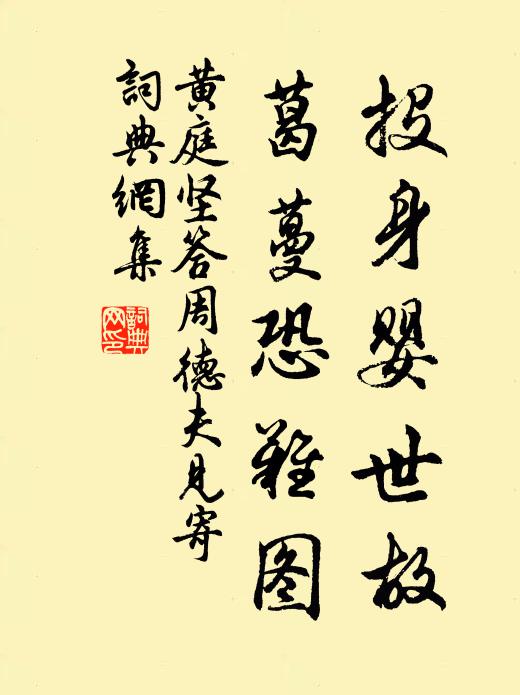 投身婴世故
葛蔓恐難图
黄庭坚答周德夫見寄
詞典網集
詞典网印